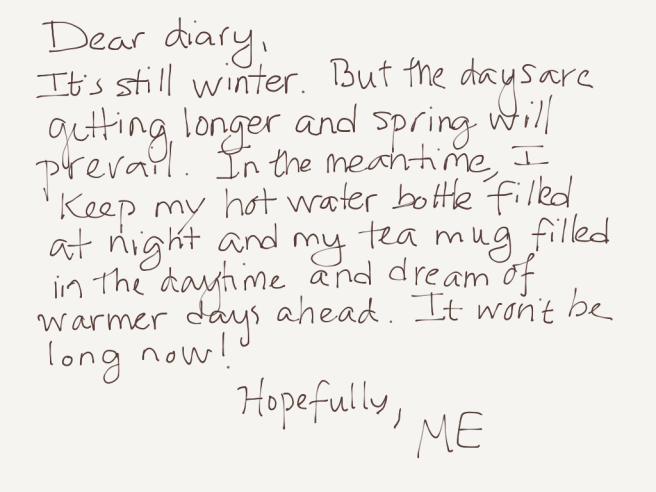 Dear diary,
It's still winter. But the days are
getting longer and spring will
prevail. In the meantime, I
keep my hot water bottle filled
at night and my tea mug filled
in the daytime and dream of
warmer days ahead. It won't be
long now!
Hopefully,
ME